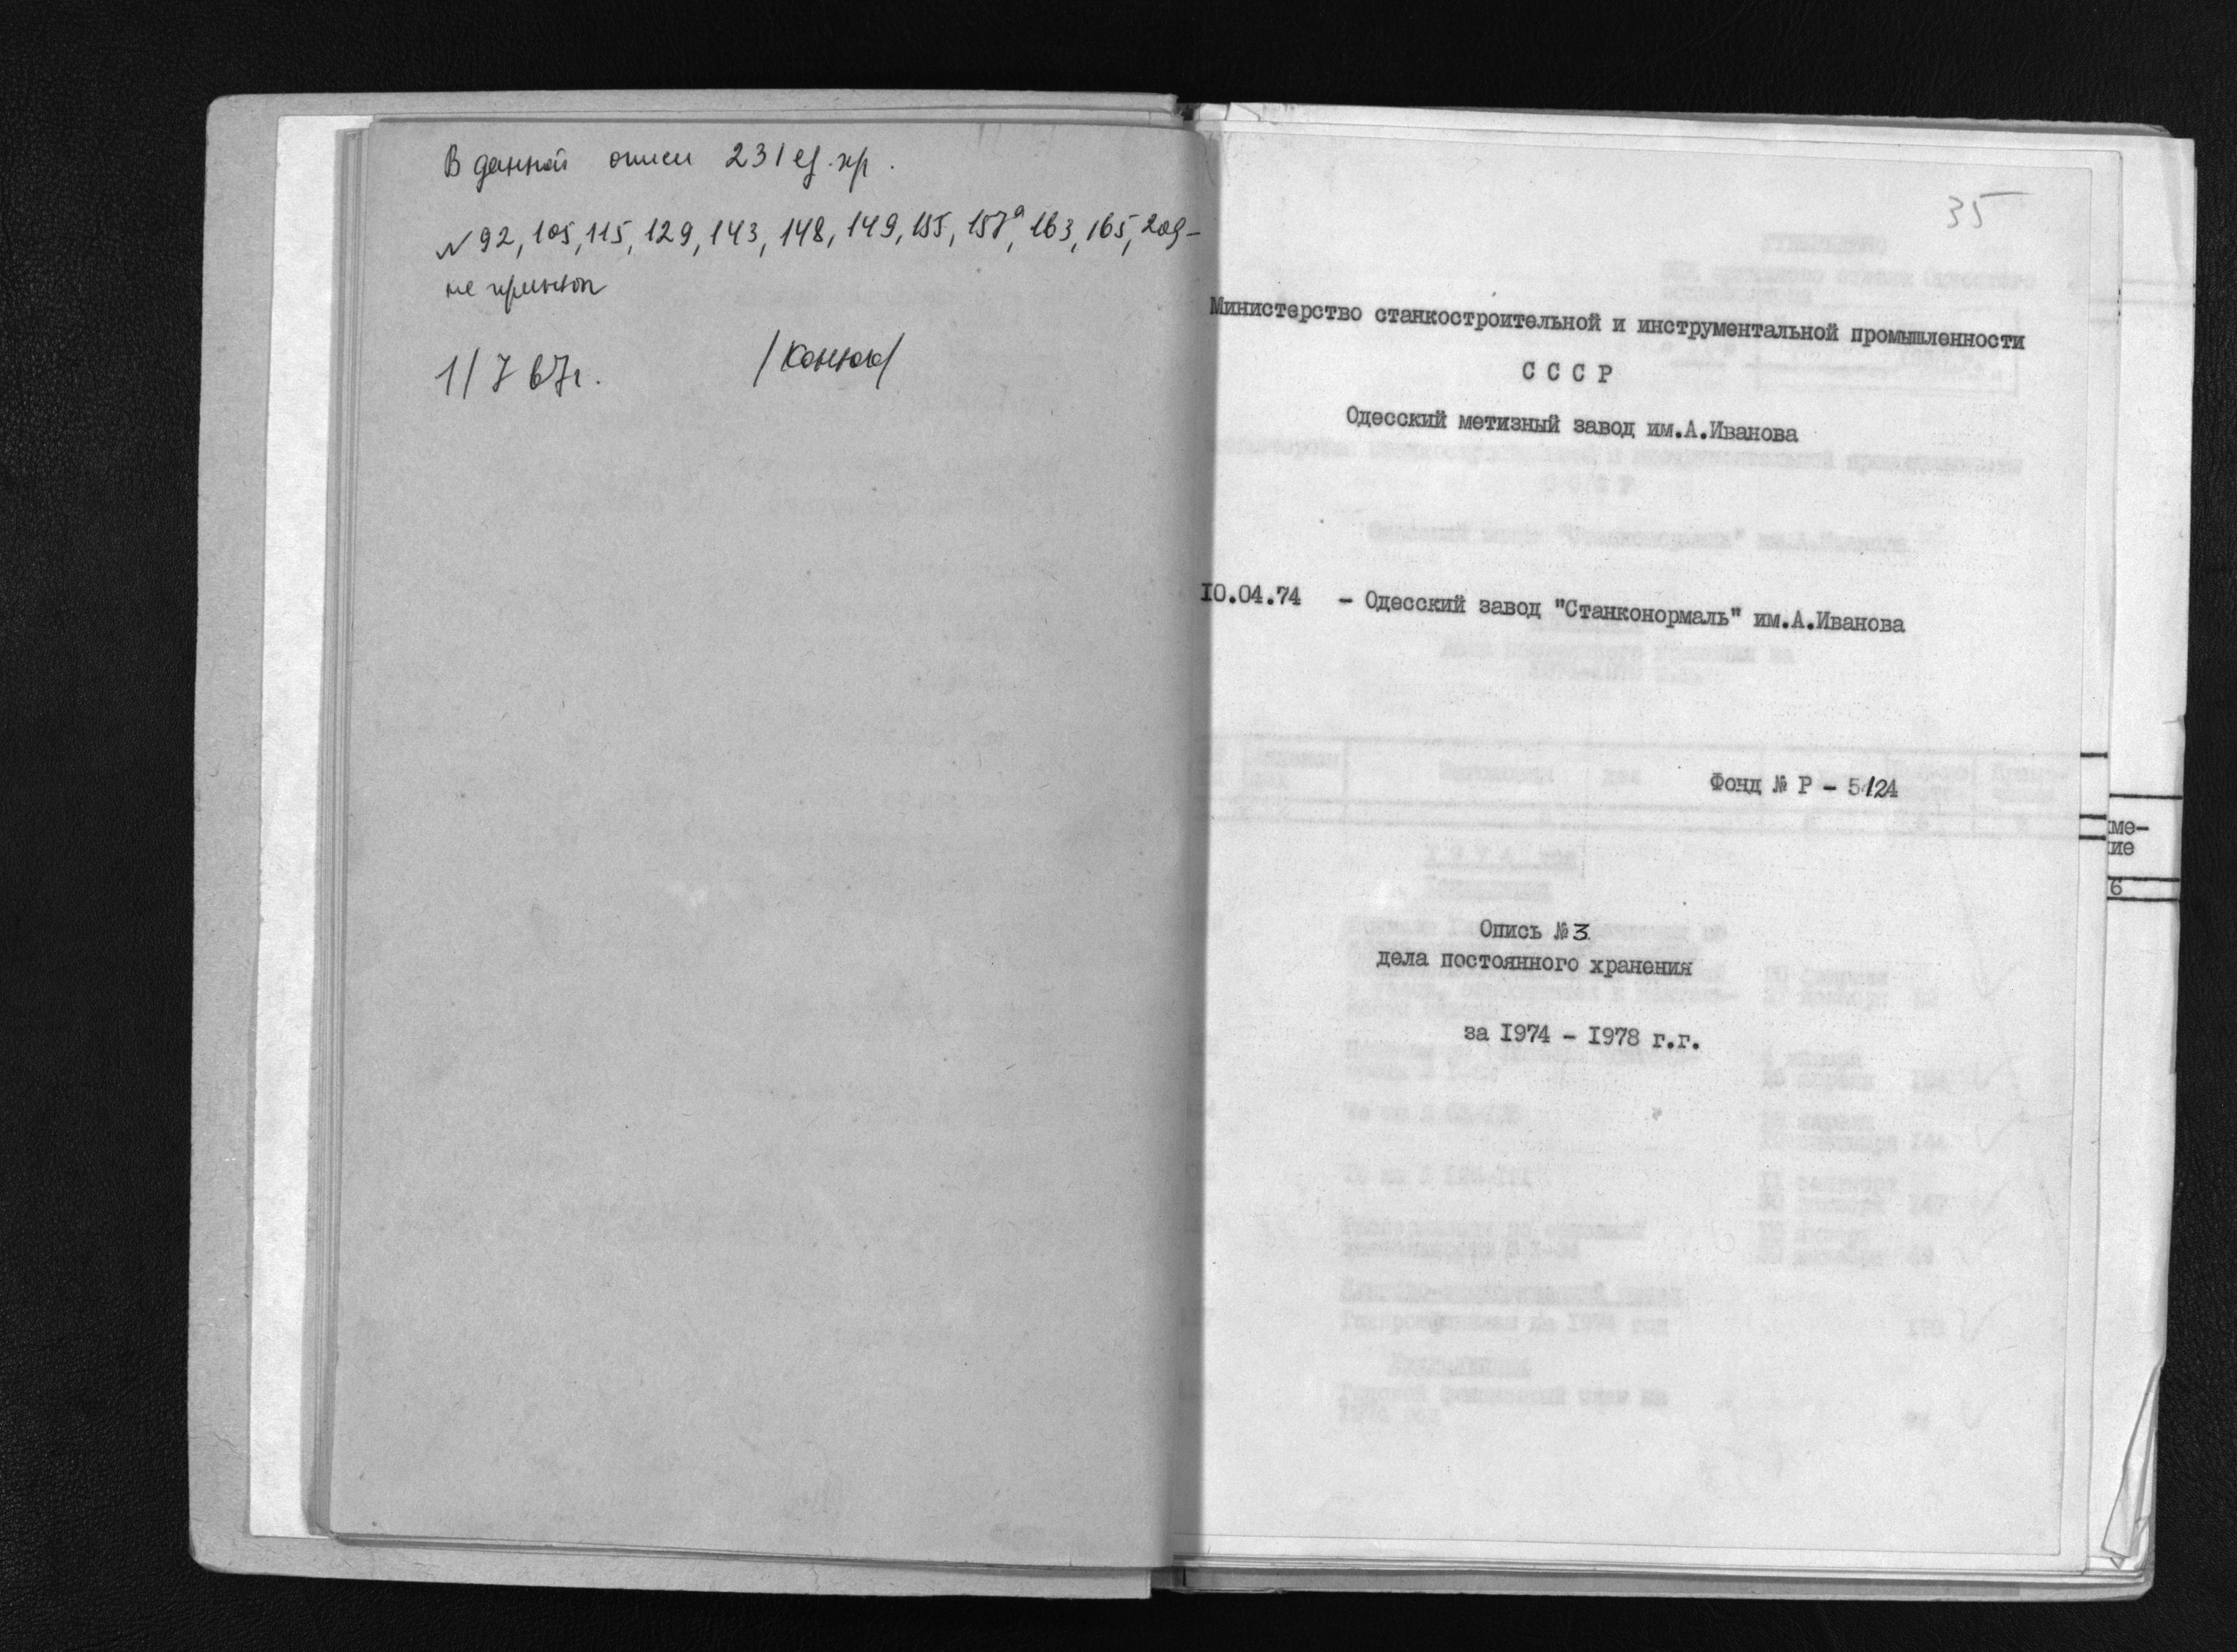 В данной описи 231 ед. хр.
N 92, 105, 115, 129, 143, 148, 149, 155, 157а, 163, 165, 209 –
не принят
1/7 67г.
35
Министерство станкостроительной и инструментальной промышленности
С С С Р
Одесский метизный завод им.А.Иванова
I0.04.74 – Одесский завод "Станконормаль" им.А.Иванова
Фонд № Р – 5124
ме-
ие
6
Опись №3
дела постоянного хранения
за I974 – I978 г.г.